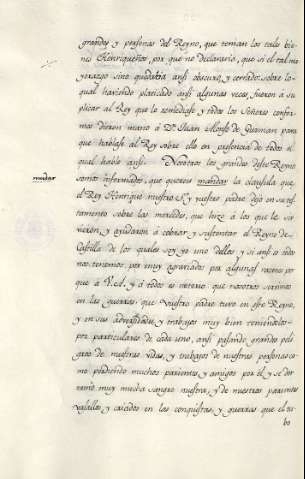 grandes y personas del Reyno, que tenian los tales bie-
nes Henriqueños, por que no declarandose, que si el tal ma
yorazgo sino quedaria ansi obscuro, y cerrado: sobre lo
qual haviendo platicado ansi algunas veces, fueron a su
plicar al Rey que lo remediase y todos los Señores confor
mes dieron mano à Dⁿ Juan Alonso de Guzman para
que hablase al Rey sobre ello en presencia de todos el
qual habló ansi. Nosotros los grandes deste Reyno
mudar
somos informados, que quereis mandar la clausula que
el Rey Henrique nuestro Sr. y vuestro padre dejó en su tes
tamento sobre las mercedes, que hizo à los que le sir
vieron, y ayudaron à cobrar y sustentar el Reyno de
Castilla de los quales soy yo uno dellos y si ansi es todos
nos tenemos, por muy agraviados por algunas razones por
que à V.A. y à todos es notorio que nosotros servimos
en las guerras, que Vuestro padre tuvo en este Reyno,
y en sus adversidades, y trabajos muy bien
particulares de cada uno, ansi pasando grandes peli
gros de nuestras vidas, y trabajos de nuestras personas co
mo perdiendo muchos parientes, y amigos por él y se der
ramó muy mucha sangre nuestra, y de nuestros parientes
vasallos y criados en las conquistas, y guerras que el tu
bo